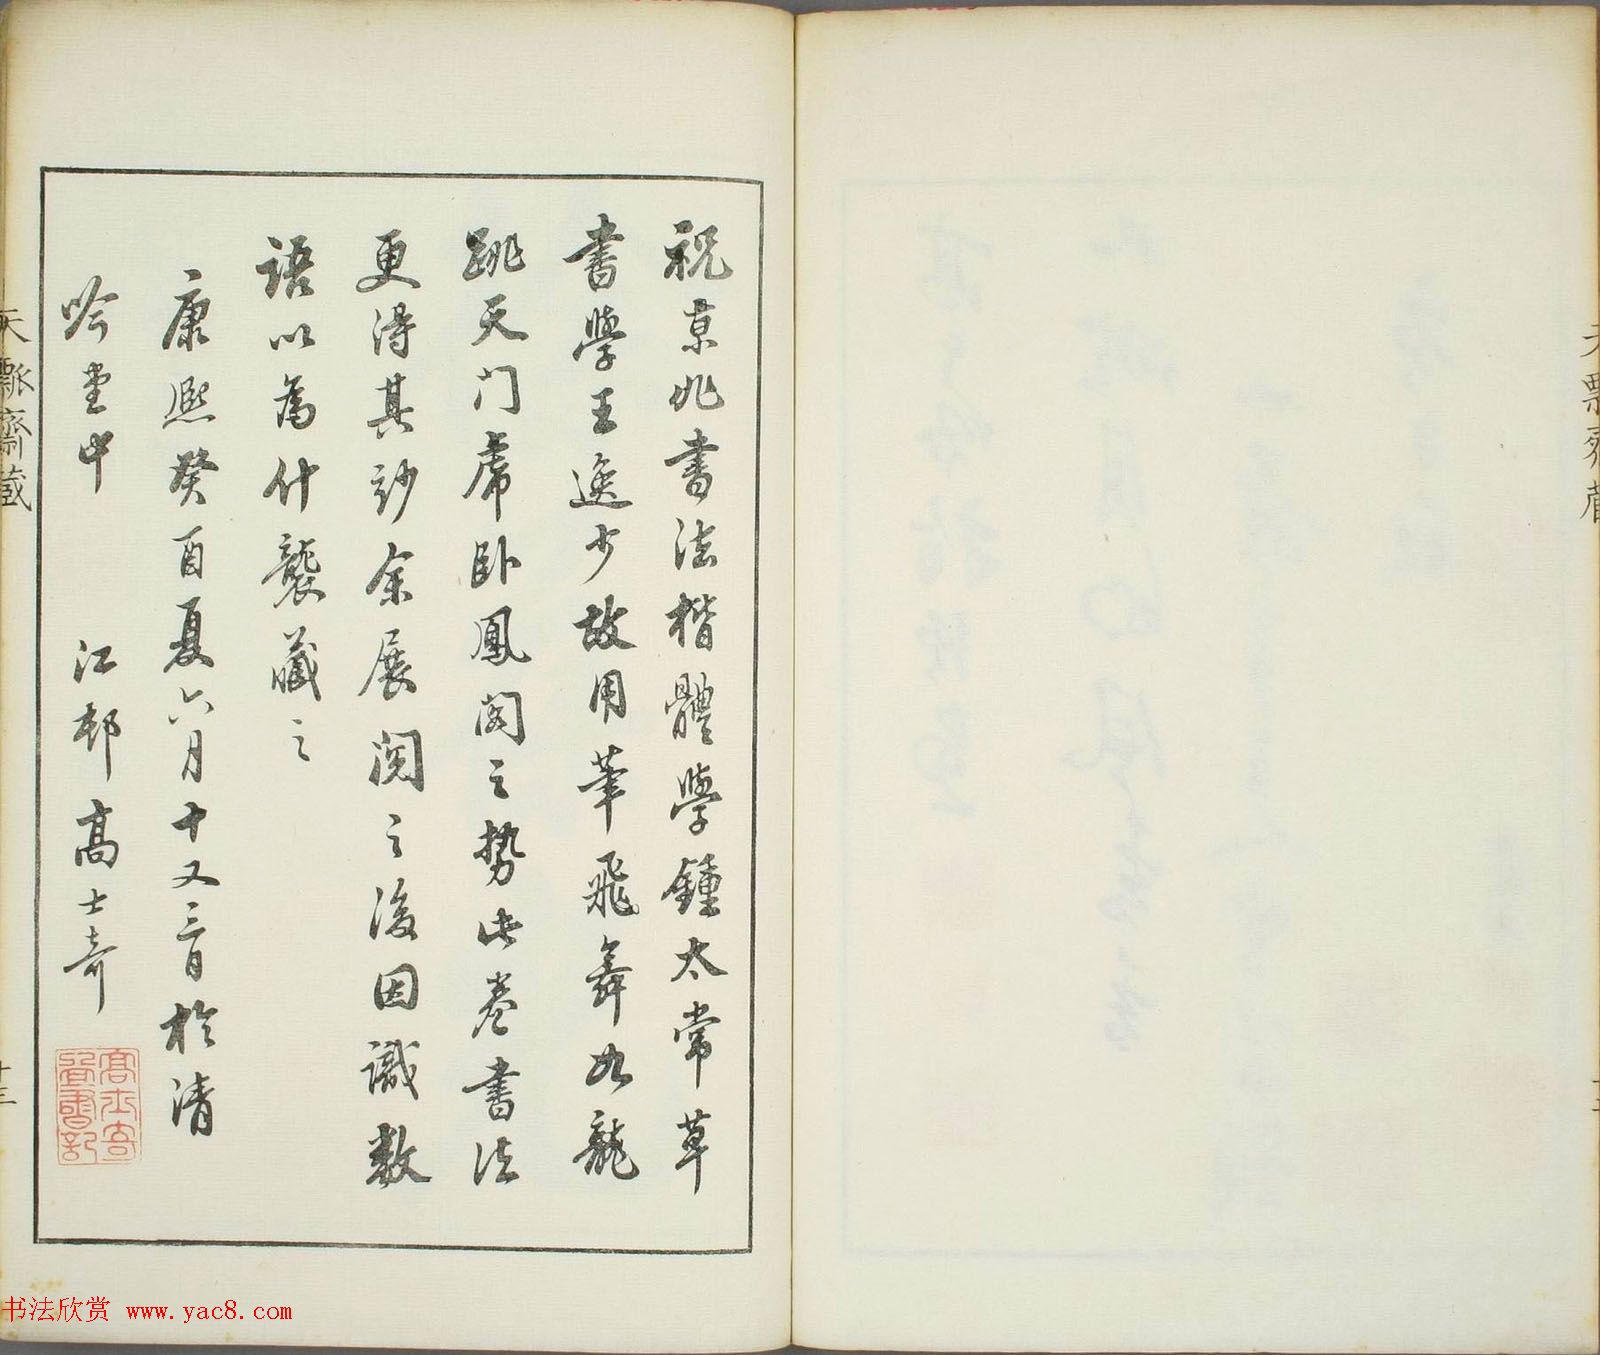 祝京兆書法楷體學鍾太常草
書學王逸少故用筆飛舞如龍
跳天門虎卧鳳閣之勢此卷書法
更得其妙余展閱之後因識數
語以為什襲藏之
康熙癸酉夏六月十又三日於清
吟堂中 江邨高士奇
高士奇
天瓢齋藏
十三
书法欣赏 www.yac8.com